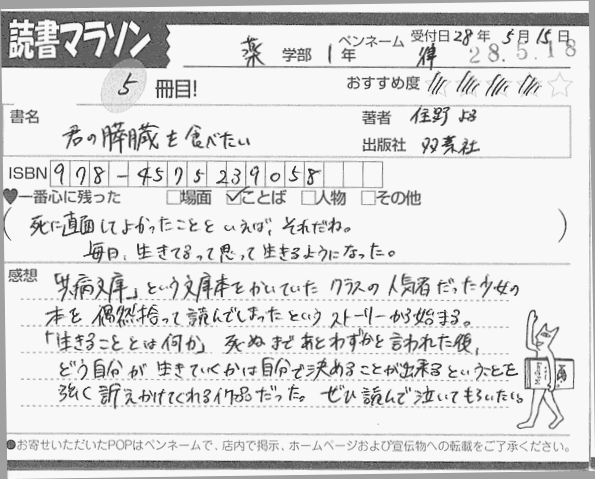 読書マラソン
薬 学部 1年 ペンネーム 律 受付日 28年 5月 15日
28.5.18
5 冊目! おすすめ度
書名 君の膵臓を食べたい
著者 住野よる
出版社 双葉社
ISBN 978-4575239058
♥一番心に残った □場面 ☑ことば □人物 □その他
(死に直面してよかったことといえば、それだね。
毎日、生きてるって思って生きるようになった。)
感想 「共病文庫」という文庫本をかいていたクラスの人気者だった少女の
本を偶然拾って読んでしまったというストーリーから始まる。
「生きることとは何か」死ぬまであとわずかと言われた後、
どう自分が生きていくかは自分で決めることが出来るということを
強く訴えかけてくれる作品だった。ぜひ読んで泣いてもらいたい。
●お寄せいただいたPOPはペンネームで、店内で掲示、ホームページおよび宣伝物への転載をご了承ください。